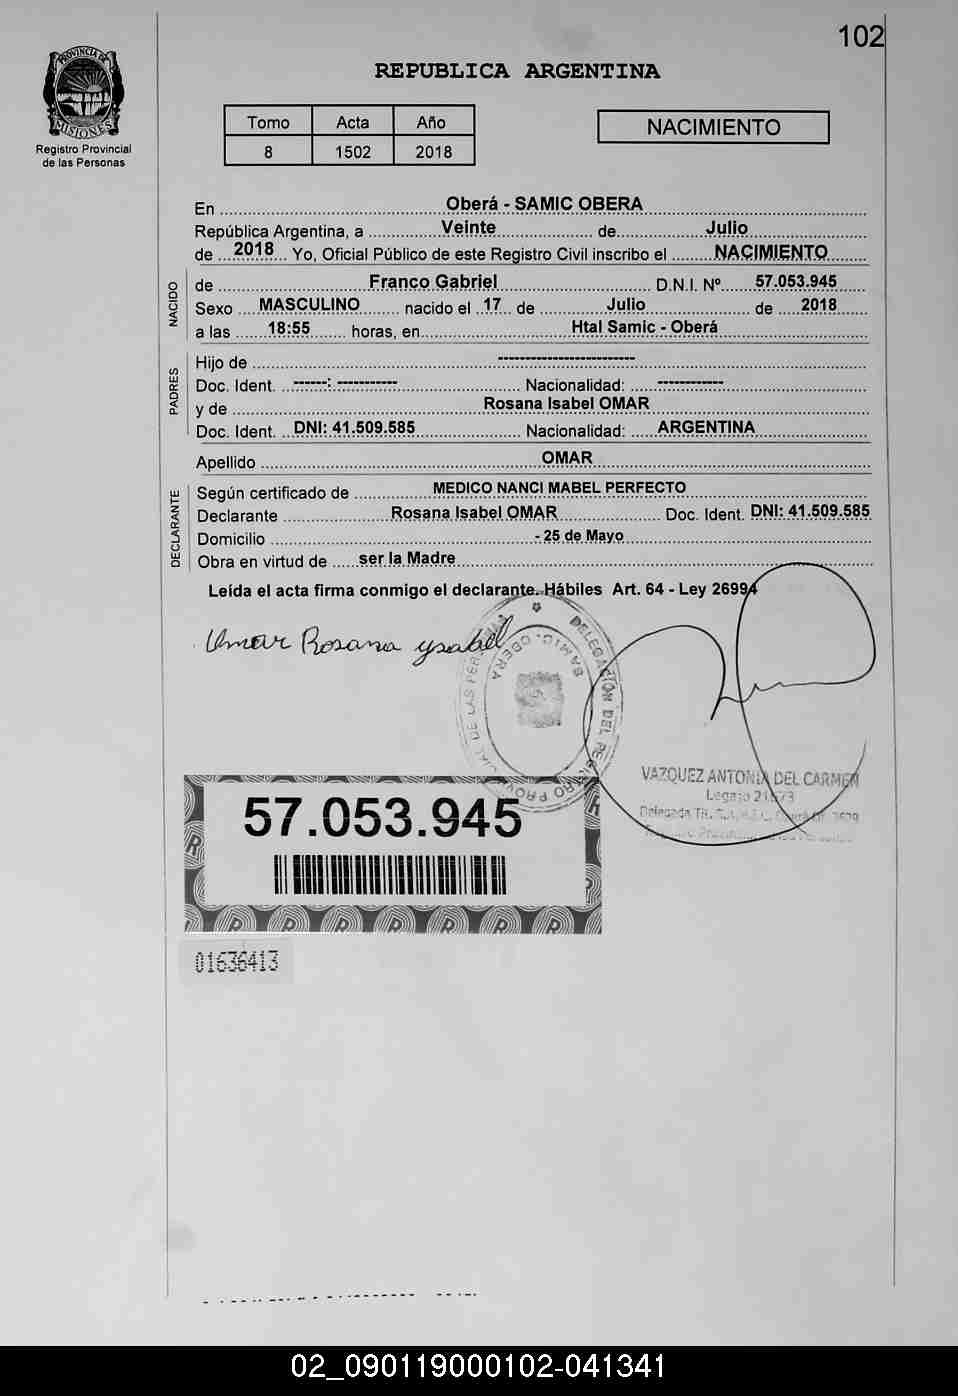 102
PROVINCIA DE
MISIONES
Registro Provincial
de las Personas
REPUBLICA ARGENTINA
Tomo Acta Año
8 1502 2018
NACIMIENTO
En Oberá - SAMIC OBERA
República Argentina, a Veinte de Julio
de 2018 Yo, Oficial Público de este Registro Civil inscribo el NACIMIENTO
NACIDO
de Franco Gabriel D.N.I. Nº 57.053.945
Sexo MASCULINO nacido el 17 de Julio de 2018
a las 18:55 horas, en Htal Samic - Oberá
PADRES
Hijo de -------------------------
Doc. Ident. ------: ----------- Nacionalidad: ------------
y de Rosana Isabel OMAR
Doc. Ident. DNI: 41.509.585 Nacionalidad: ARGENTINA
Apellido OMAR
DECLARANTE
Según certificado de MEDICO NANCI MABEL PERFECTO
Declarante Rosana Isabel OMAR Doc. Ident. DNI: 41.509.585
Domicilio - 25 de Mayo
Obra en virtud de ser la Madre
Leída el acta firma conmigo el declarante. Hábiles Art. 64 - Ley 26994
Omar Rosana ysabel
DELEGACION DEL REGISTRO PROVINCIAL DE LAS PERSONAS
SAMIC. OBERA
VAZQUEZ ANTONIA DEL CARMEN
Legajo 21573
Delegada
57.053.945
01636413
02_090119000102-041341